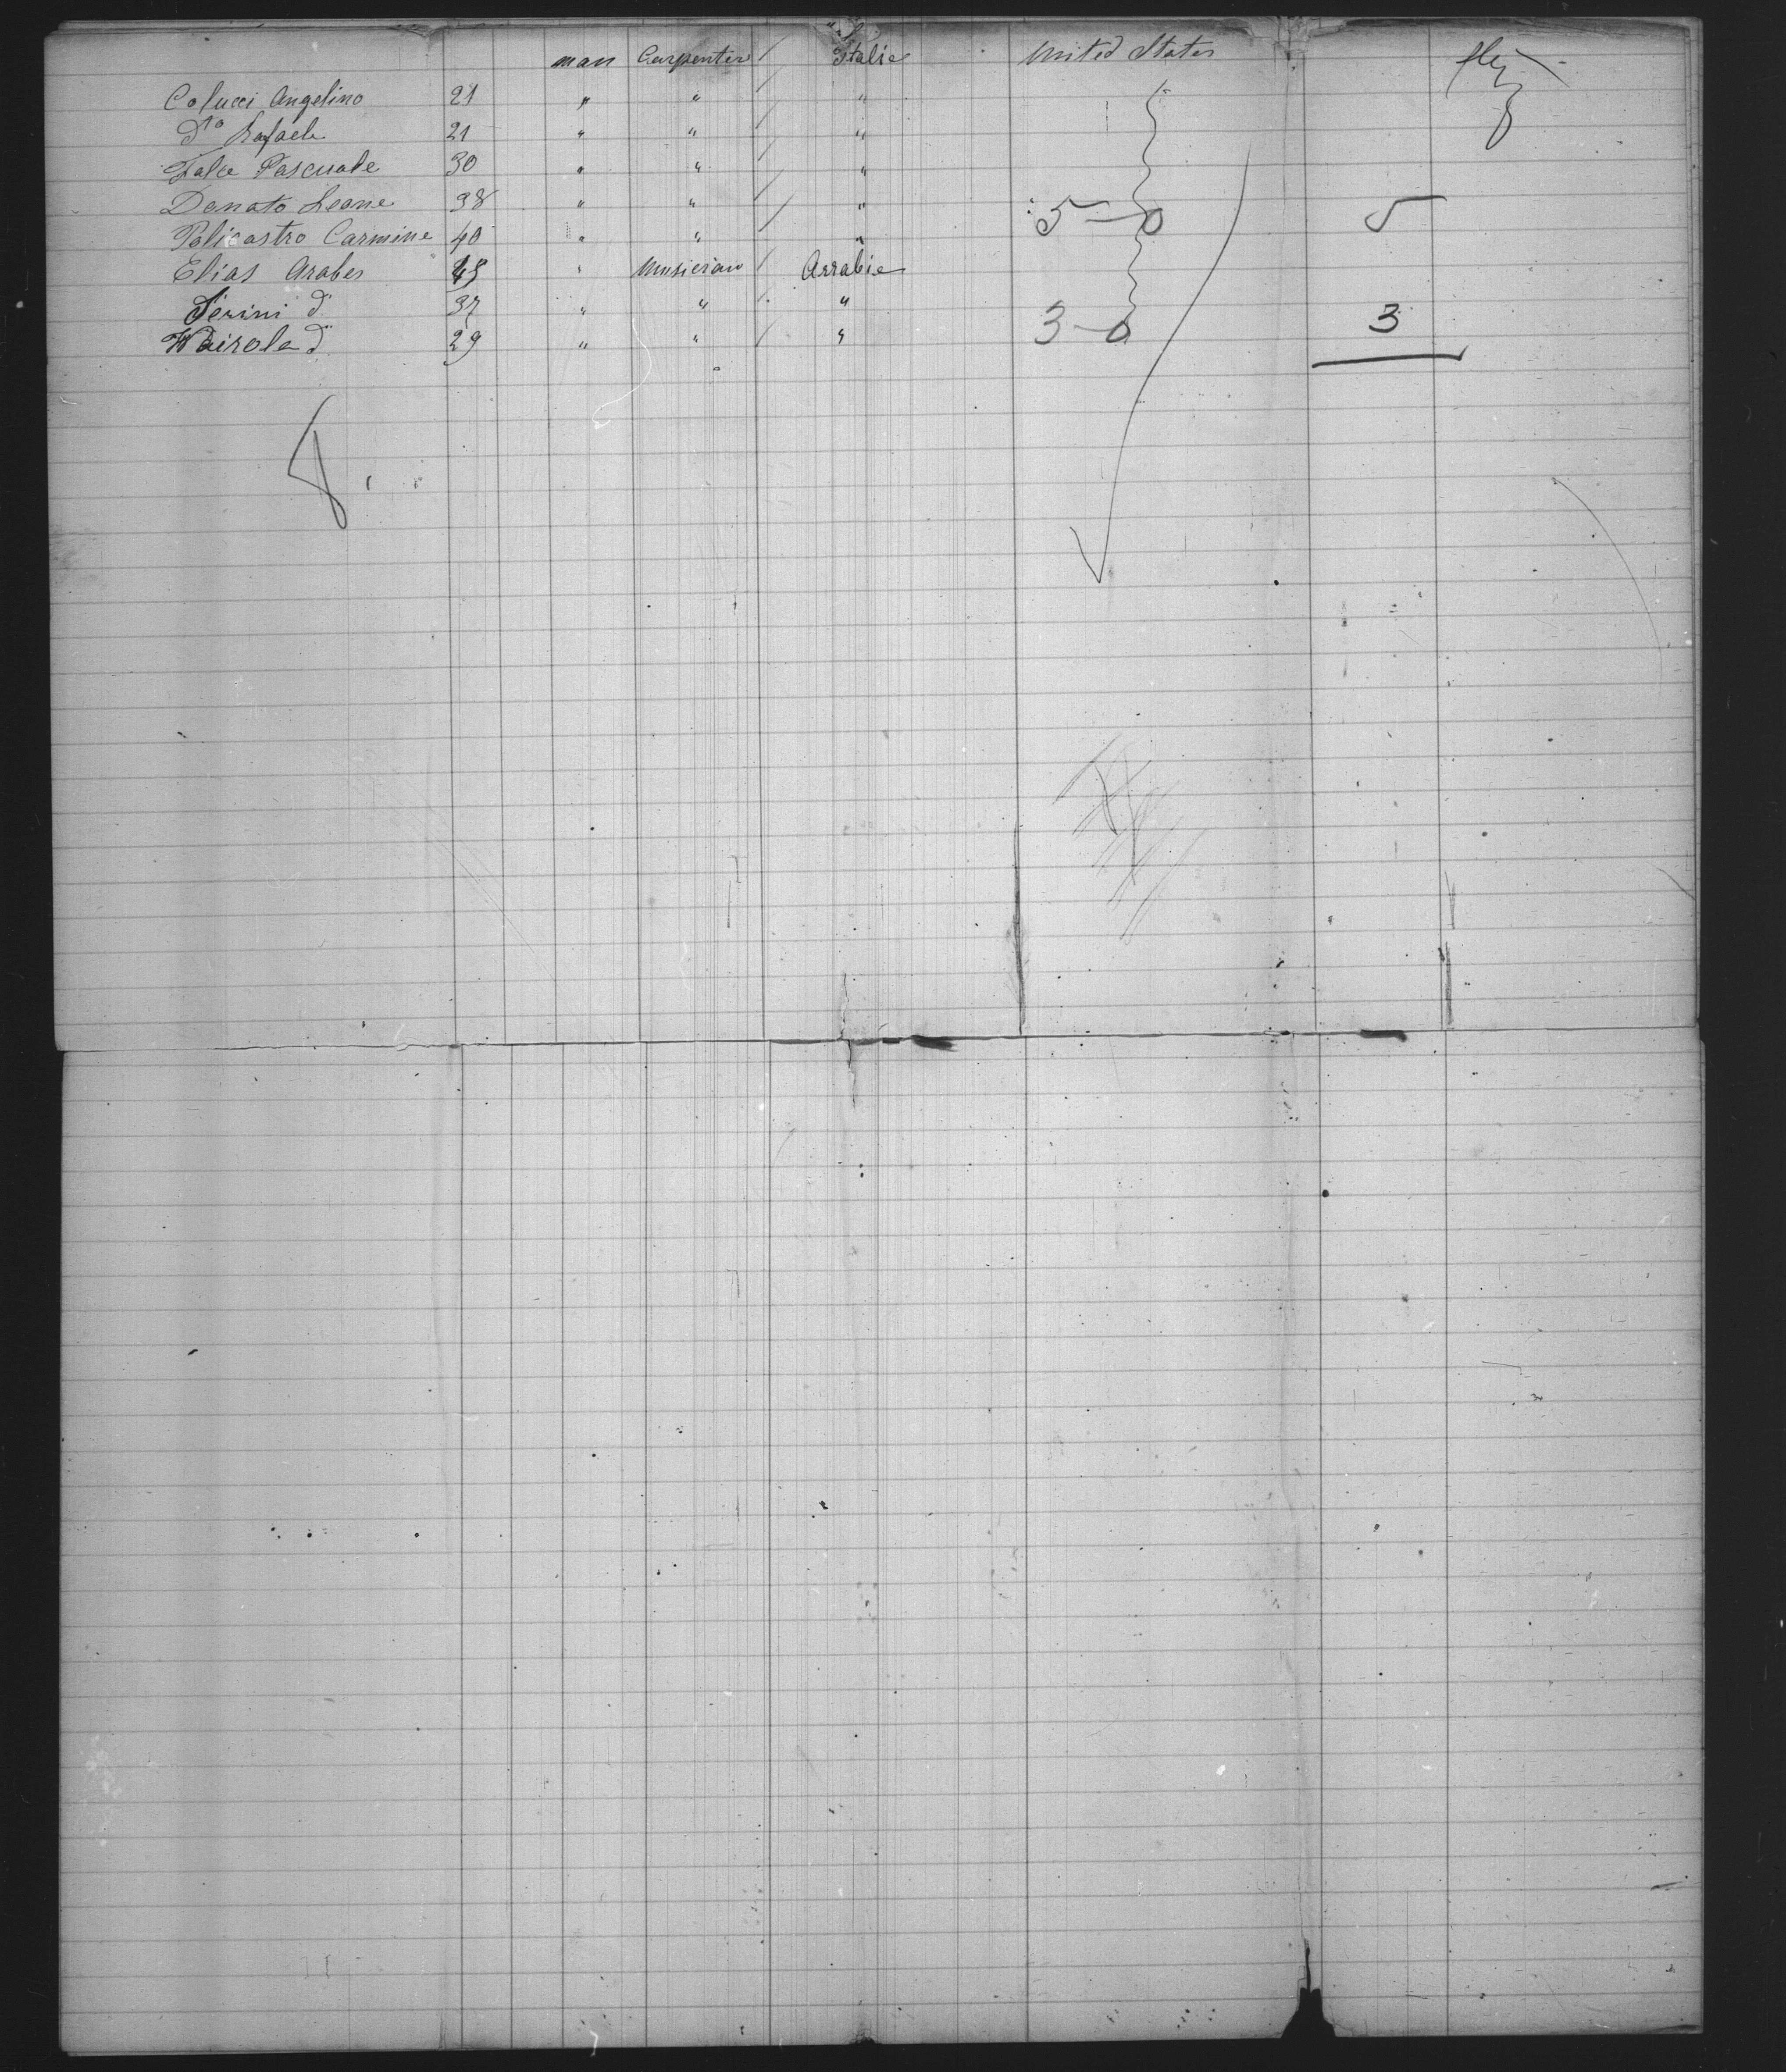 man Carpenter Italie United States
Colucci Angelino 21 " " "
dto Rafaele 21 " " "
Falce Pascuale 30 " " "
Donato Leone 38 " " " 5-0 5
Policastro Carmine 40 " " "
Elias Arabes 45 " Musician Arrabie
Serini d° 37 " " "
Wairola d° 29 " " " 3-0 3
8